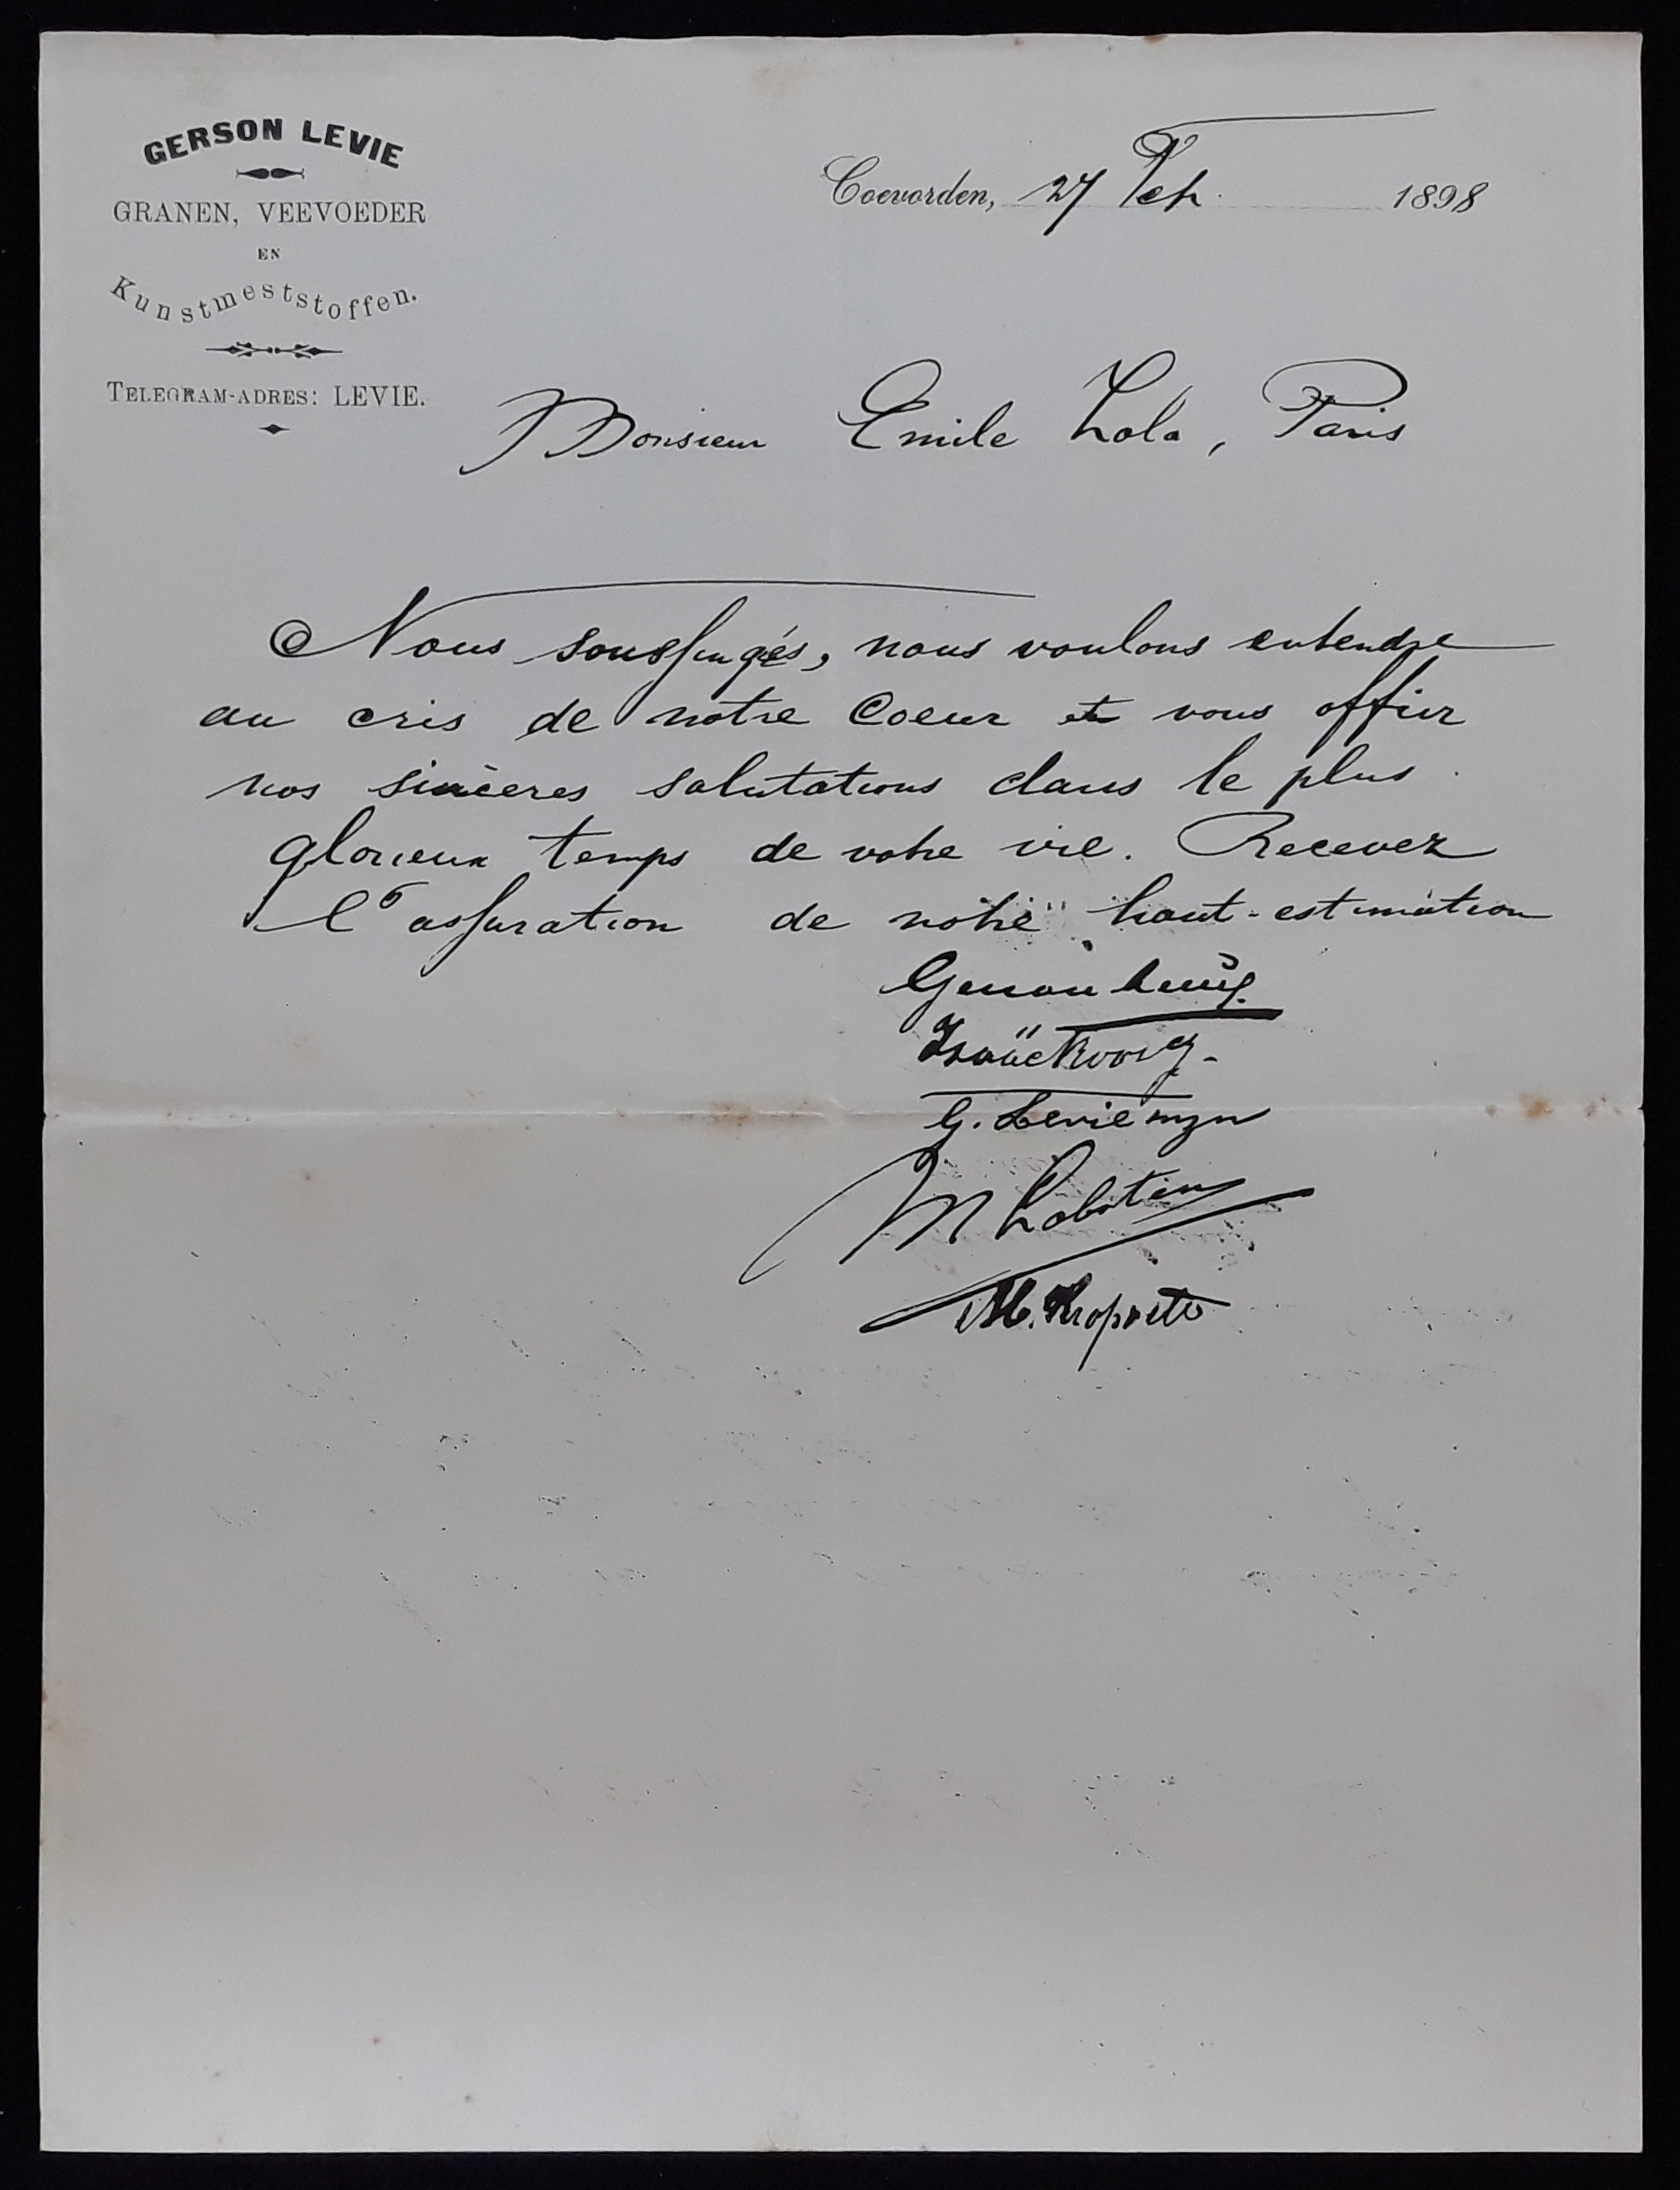 GERSON LEVIE
GRANEN, VEEVOEDER
EN
Kunstmeststoffen.
TELEGRAM-ADRES: LEVIE.
Coevorden, 27 Feb. 1898
Monsieur Emile Zola, Paris
Nous soussingés, nous voulons entendre
au cris de notre Coeur et vous offrir
nos sincères salutations dans le plus
glorieux temps de votre vie. Recevez
l'assuration de notre haut-estimation
Gerson Levie
Isaäc
G. Levie mzn
M
M.